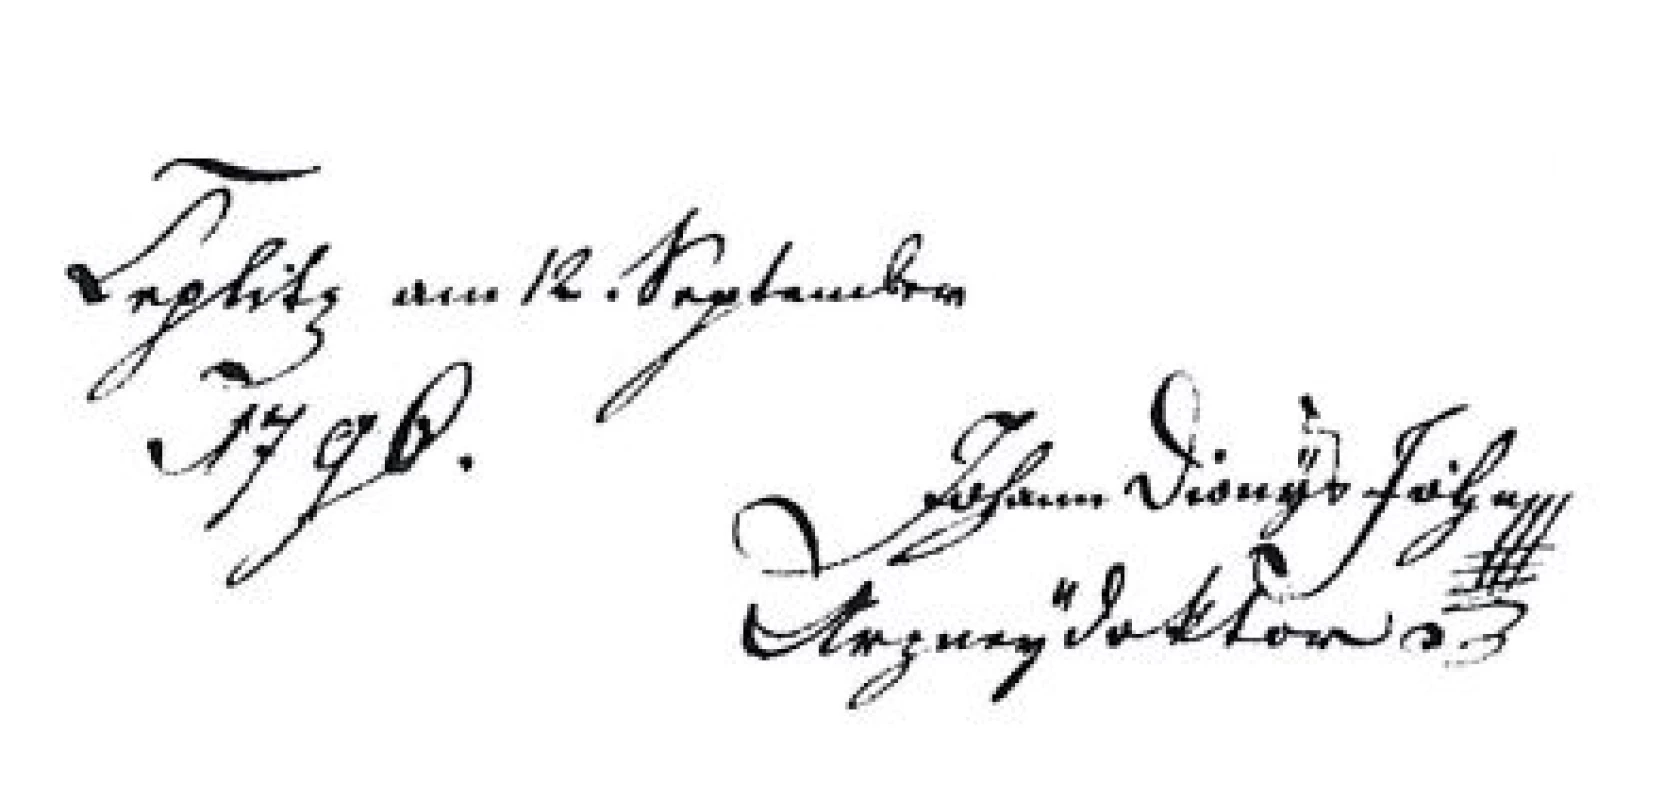 Teplitz am 12. September
1796.
Johann Dionys John
Arzneÿdoktor